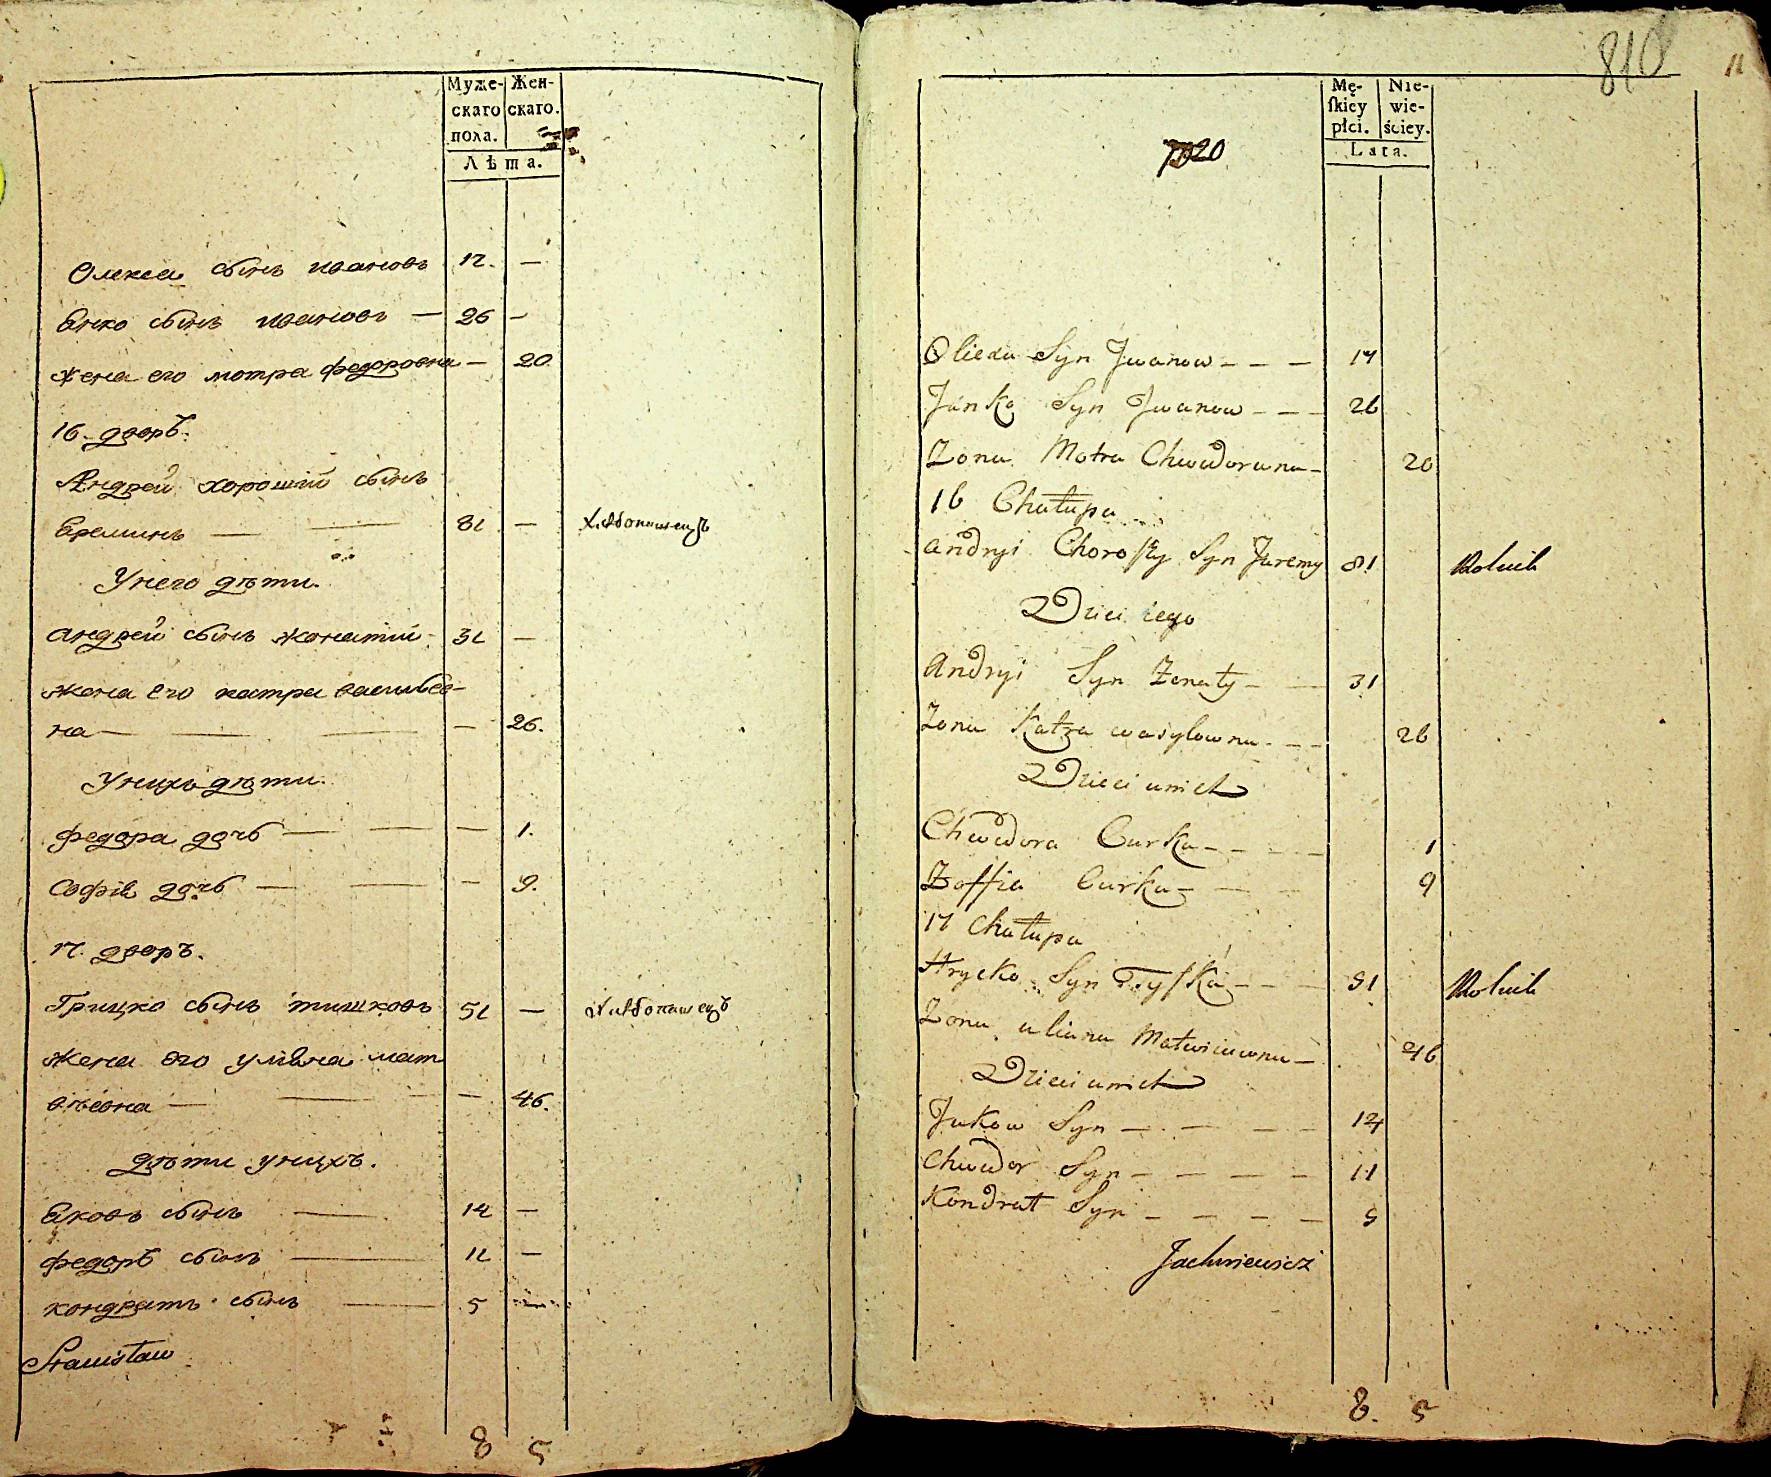 Муже-
скаго
пола.
Жен-
скаго.
Лѣта.
Олекса сынъ ивановъ 17. —
Янко сынъ ивановъ — 26 —
жена его мотра федоровна — 20
16. дворъ.
Андрей хорошій сынъ
Яреминъ — 81 — хлѣбопашецъ
Унего дѣти.
андрей сынъ жонатий 31 —
жена его катра василье-
на — — 26.
Унихъ дѣти.
федора дочь — — 1.
Софія дочь — — 9.
17. дворъ.
Грицко сынъ тишковъ 51 — хлѣбопашецъ
жена его уляна мат
вѣевна — — 46.
дѣти унихъ.
Яковъ сынъ — 14 —
федоръ сынъ — 11 —
кондратъ сынъ — 5 —
Stanisław
8 5
810
11
Mę-
ſkiey
płci.
Nie-
wie-
ściey.
Lata.
Olexa Syn Jwanow — — — 17
Janko Syn Jwanow — — — 26
Zona Motra Chwedorowna — 20
16 Chałupa
Andryi Choroſzy Syn Jaremy 81 Rolnik
Dzieci iego
Andryi Syn Zonaty — — 31
Zona Katra wasylowna — — 26
Dzieci unich
Chwedora Curka — — — — 1
Zoffia Curka — — — 9
17 Chałupa
Hrycko Syn Tyſzka — — — 51 Rolnik
Zona uliana Matwieiewna — 46
Dzieci unich
Jakow Syn — — — — 14
Chwedor Syn — — — — 11
Kondrat Syn — — — — 5
Jachniewicz
8. 5